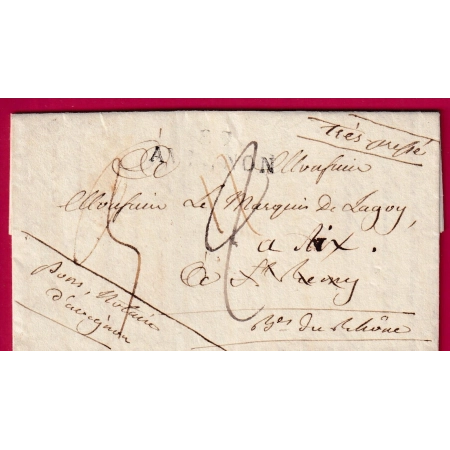 très pressé
AVIGNON
A Monsieur
Monsieur Le Marquis De Lagoy,
a Aix.
à St Remy
Bes du Rhône
pons, Notaire
d'avignon